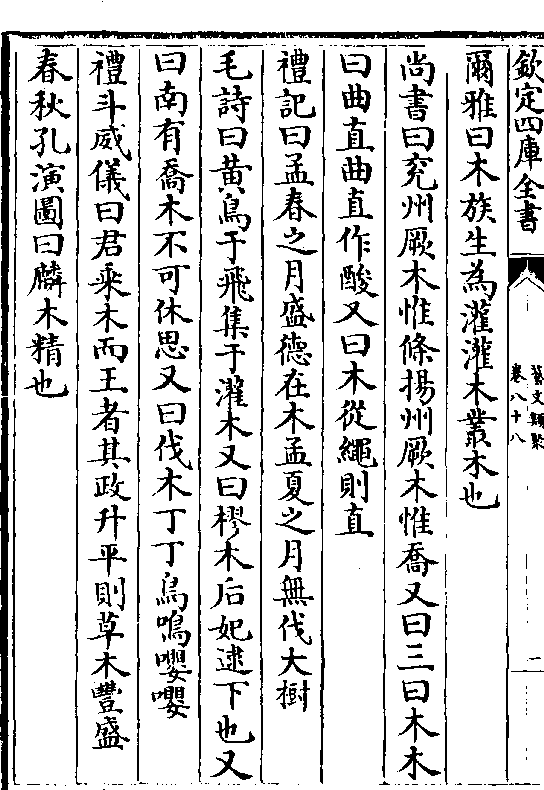 欽定四庫全書
藝文類聚
卷八十八
二
爾雅曰木族生為灌灌木叢木也
尚書曰兖州厥木惟條揚州厥木惟喬又曰三曰木木
曰曲直曲直作酸又曰木從繩則直
禮記曰孟春之月盛德在木孟夏之月無伐大樹
毛詩曰黄鳥于飛集于灌木又曰樛木后妃逮下也又
曰南有喬木不可休思又曰伐木丁丁鳥鳴嚶嚶
禮斗威儀曰君乘木而王者其政升平則草木豐盛
春秋孔演圖曰麟木精也